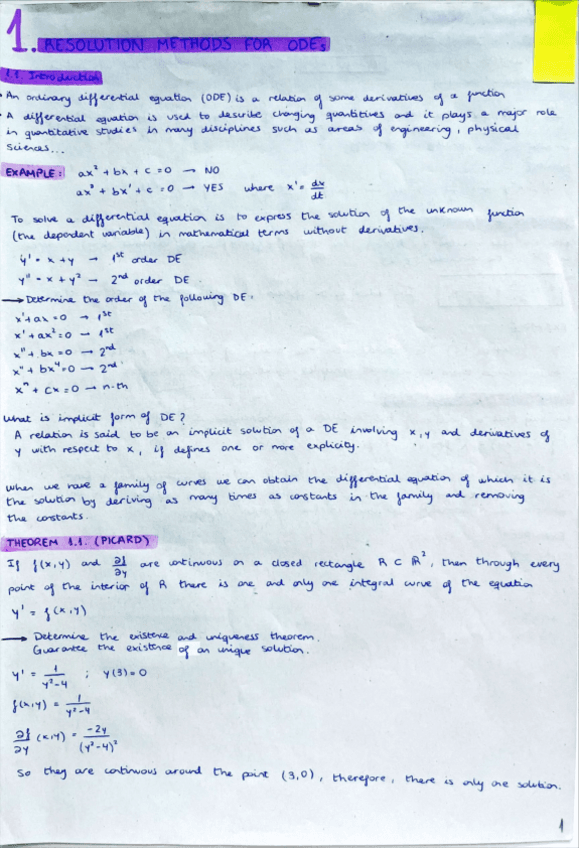 1. RESOLUTION METHODS FOR ODEs
1.1. Introduction
· An ordinary differential equation (ODE) is a relation of some derivatives of a function
· A differential equation is used to describe changing quantitives and it plays a major role
in quantitative studies in many disciplines such as areas of engineering, physical
sciences...
EXAMPLE: ax² + bx + c = 0 → NO
ax² + bx' + c = 0 → YES where x' = dx/dt
To solve a differential equation is to express the solution of the unknown function
(the dependent variable) in mathematical terms without derivatives.
y' = x + y → 1st order DE
y'' = x + y² → 2nd order DE
→ Determine the order of the following DE:
x' + ax = 0 → 1st
x' + ax² = 0 → 1st
x'' + bx = 0 → 2nd
x'' + bx⁴ = 0 → 2nd
xⁿ + cx = 0 → n-th
What is implicit form of DE?
A relation is said to be an implicit solution of a DE involving x, y and derivatives of
y with respect to x, if defines one or more explicity.
When we have a family of curves we can obtain the differential equation of which it is
the solution by deriving as many times as constants in the family and removing
the constants.
THEOREM 1.1. (PICARD)
If f(x,y) and ∂f/∂y are continuous on a closed rectangle R ⊂ ℝ², then through every
point of the interior of R there is one and only one integral curve of the equation
y' = f(x,y)
→ Determine the existence and uniqueness theorem.
Guarantee the existence of an unique solution.
y' = 1/(y²-4) ; y(3) = 0
f(x,y) = 1/(y²-4)
∂f/∂y (x,y) = -2y/(y²-4)²
So they are continuous around the point (3,0), therefore, there is only one solution.
1